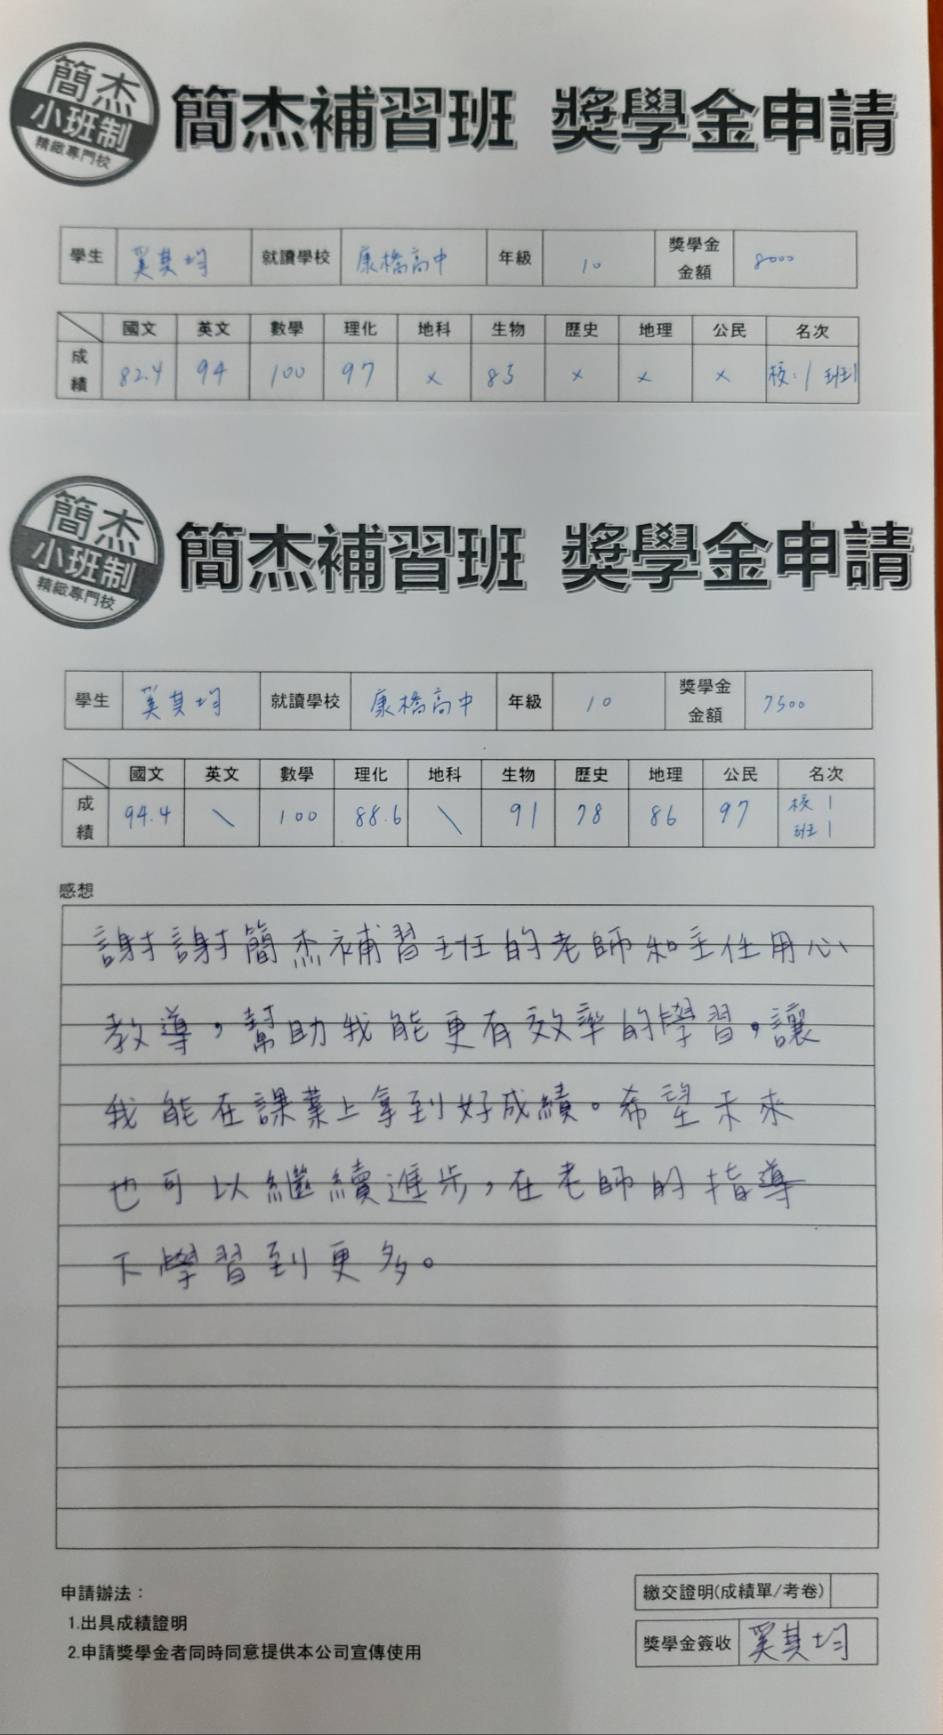 簡杰
小班制
精緻專門校
簡杰補習班 獎學金申請
學生 奚其均 就讀學校 康橋高中 年級 10 獎學金金額 8000
國文 英文 數學 理化 地科 生物 歷史 地理 公民 名次
成績 82.4 94 100 97 × 83 × × × 校:1 班1
簡杰
小班制
精緻專門校
簡杰補習班 獎學金申請
學生 奚其均 就讀學校 康橋高中 年級 10 獎學金金額 7500
國文 英文 數學 理化 地科 生物 歷史 地理 公民 名次
成績 94.4 \ 100 88.6 \ 91 78 86 97 校1 班1
感想
謝謝簡杰補習班的老師和主任用心
教導,幫助我能更有效率的學習,讓
我能在課業上拿到好成績。希望未來
也可以繼續進步,在老師的指導
下學習到更多。
申請辦法:
1.出具成績證明
2.申請獎學金者同時同意提供本公司宣傳使用
繳交證明(成績單/考卷)
獎學金簽收 奚其均